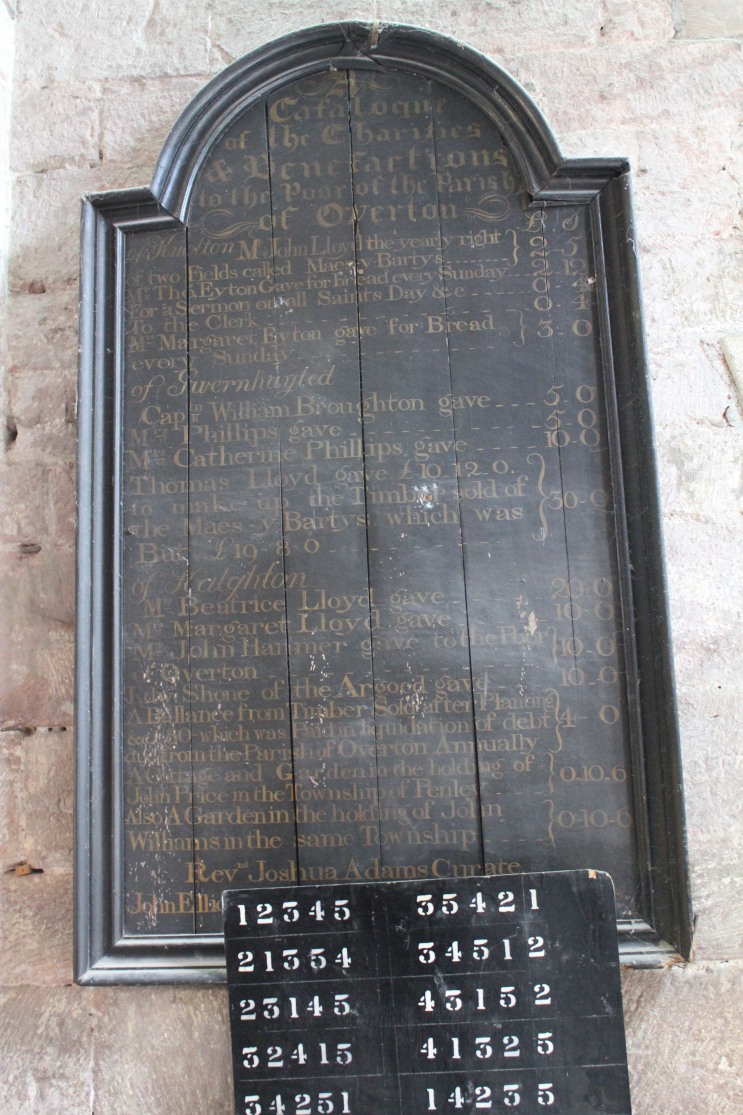 A
Catalogue
of the Charities
& Benefactions
to the Poor of the Parish
of Overton
£ S
of Knolton Mr John Lloyd the yearly right } 2 5
of two Fields called Maes-y-Bartys
Mr Thos Eyton Gave for bread every Sunday 2 12
For a Sermon on all Saints Day &c 0 4
To the Clerk 0 4
Mrs Margaret Eyton gave for Bread } 3 0
every Sunday
of Gwernhayled
Captn William Broughton gave 5 0
Phillips gave 5 0
Catherine Phillips gave 10-0
Thomas Lloyd gave £10.12.0.
to make up the Timber sold of } 30-0
the Maes-y-Bartys which was
But £19 8-0
of
Beatrice Lloyd gave 20-0
Margaret Lloyd gave 10-0
Mr John Hanmer gave to the Poor } 10-0
Overton
Shone of the Argoed gave 10-0
A Ballance from Timber Sold after Planting
which was Paid in liquidation of debt } 4-0
from the Parish of Overton Annually
A Cottage and Garden in the holding of } 0-10-6
John Price in the Township of Penley
Also A Garden in the holding of John } 0-10-0
Williams in the same Township
Revnd Joshua Adams Curate
John
12345 35421
21354 34512
23145 43152
32415 41325
34251 14235